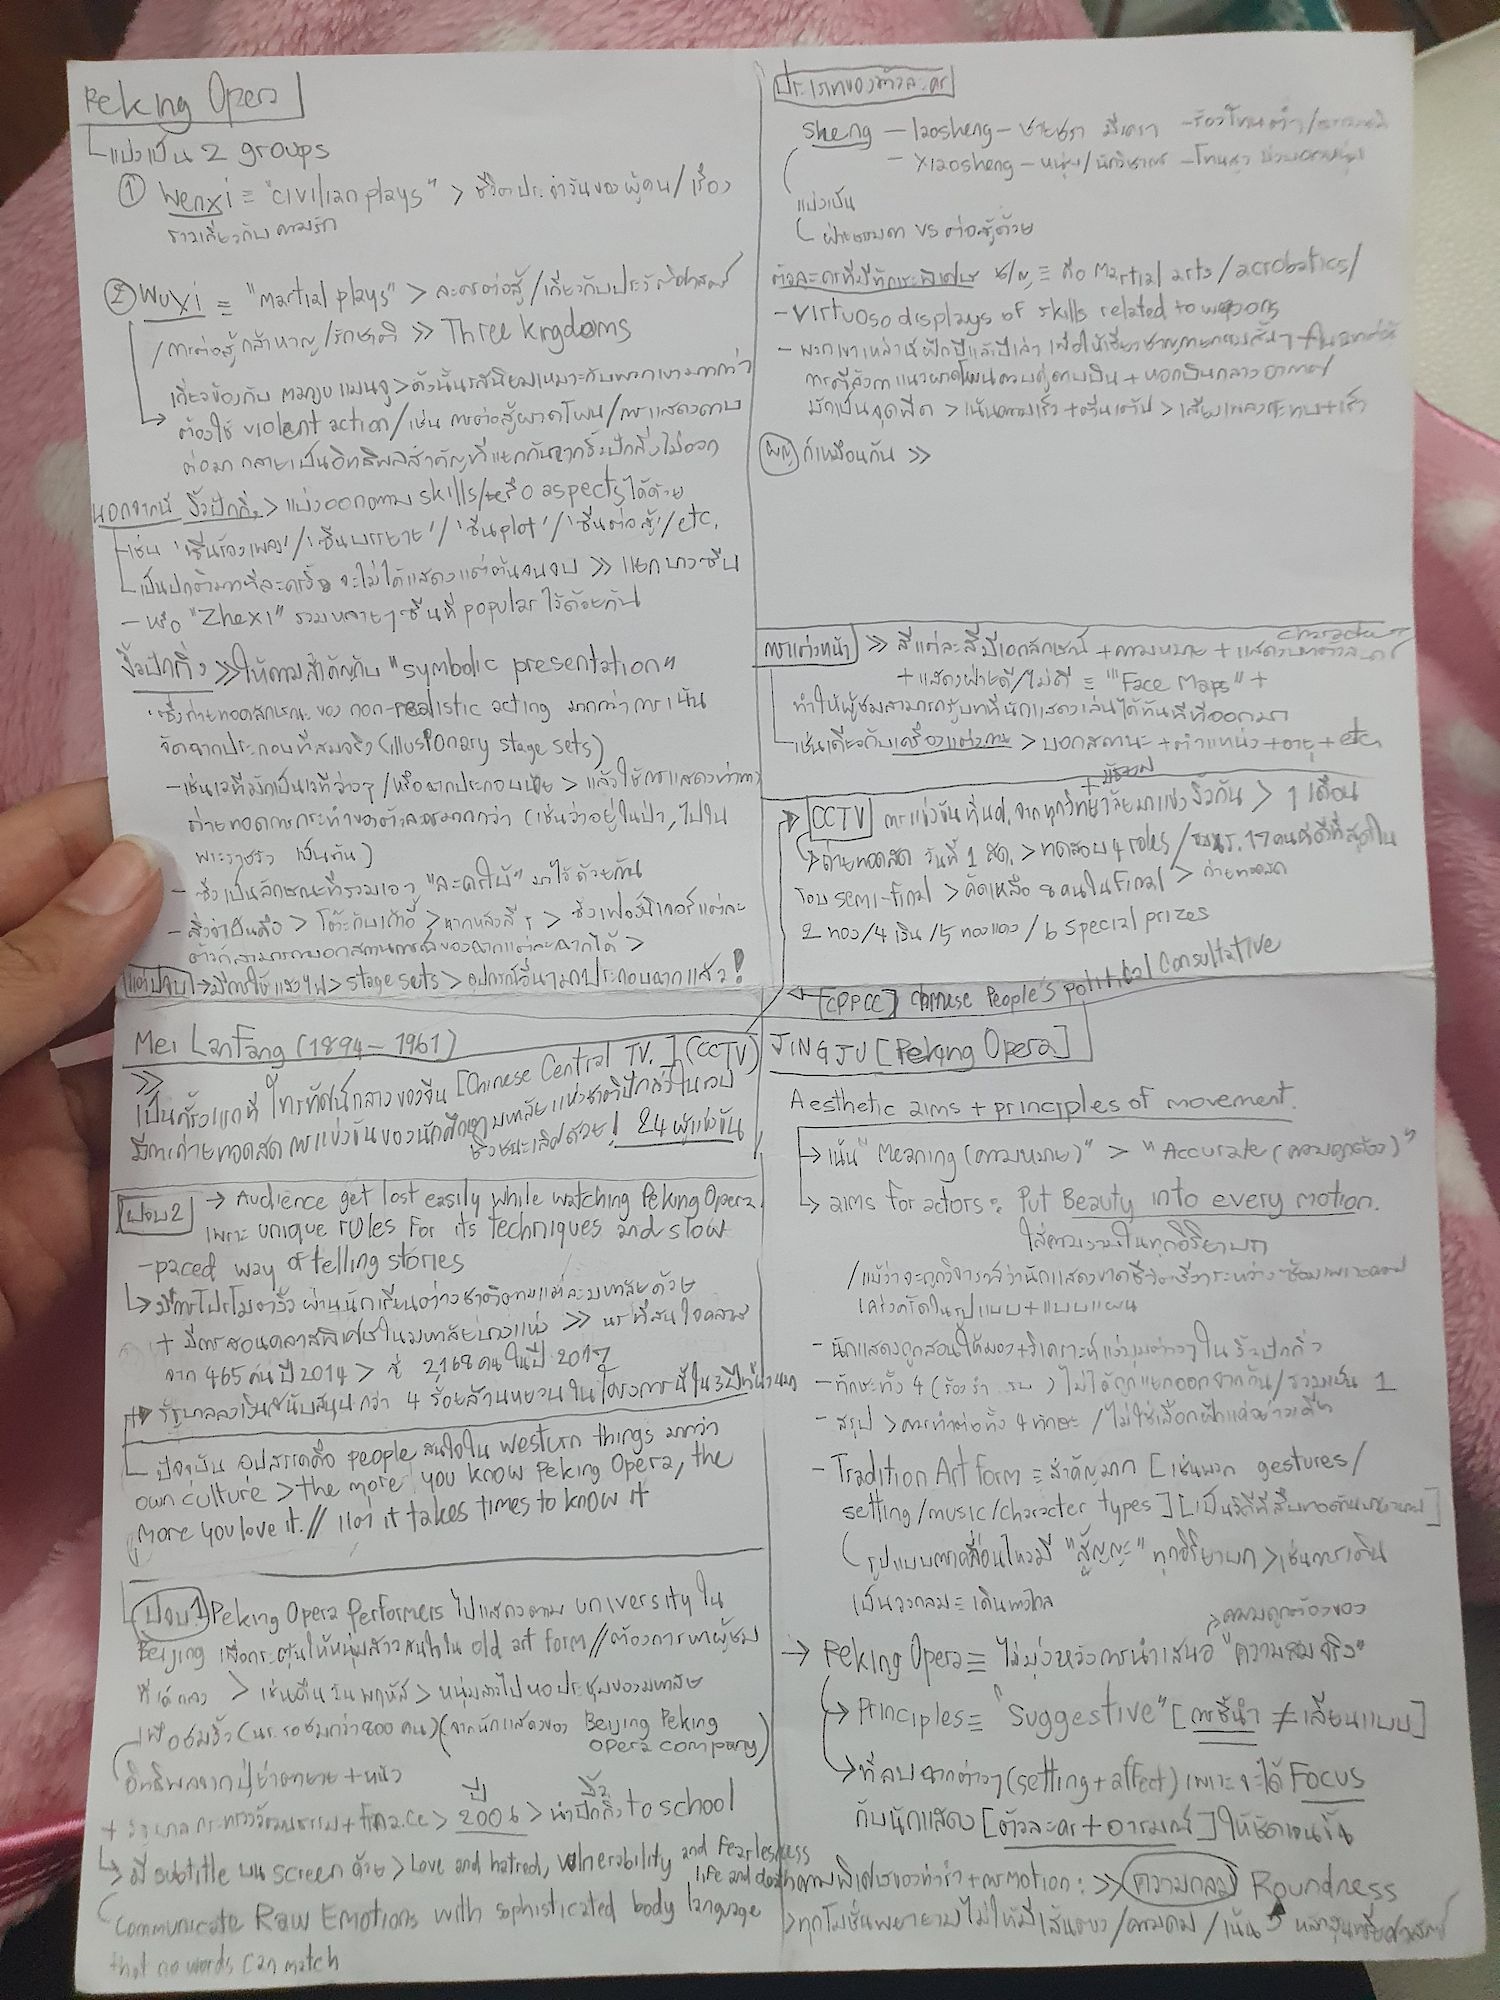 Peking Opera
แบ่งเป็น 2 groups
① Wenxi = "civilian plays" > ชีวิตประจำวันของผู้คน / เรื่อง
ราวเกี่ยวกับความรัก
② Wuxi = "martial plays" > ละครต่อสู้ / เกี่ยวกับประวัติศาสตร์
/ การต่อสู้กล้าหาญ / รักชาติ >> Three kingdoms
เกี่ยวข้องกับ > ดังนั้น
ต้องใช้ violent action / เช่น การต่อสู้ผาดโผน / การแสดงดาบ
ต่อมา กลายเป็นอิทธิพลสำคัญที่แยกกันจากงิ้วปักกิ่งไม่ออก
นอกจากนี้ งิ้วปักกิ่ง > แบ่งออกตาม skills / หรือ aspects ได้ด้วย
เช่น 'ซีนร้องเพลง' / 'ซีนบรรยาย' / 'ซีน plot' / 'ซีนต่อสู้' / etc.
เป็นปกติมากที่ละครงิ้ว จะไม่ได้แสดงแต่ต้นจนจบ >> แยกบางซีน
- หรือ "Zhexi" รวมหลายๆซีนที่ popular ไว้ด้วยกัน
งิ้วปักกิ่ง >> ให้ความสำคัญกับ "symbolic presentation"
ซึ่งถ่ายทอดลักษณะของ non-realistic acting มากกว่าการเน้น
จัดฉากประกอบที่สมจริง (illusionary stage sets)
- เช่นเวทีมักเป็นเวทีว่างๆ / หรือฉากประกอบน้อย > แล้วใช้การแสดงท่าทาง
ถ่ายทอดการกระทำของตัวละครมากกว่า (เช่นว่าอยู่ในป่า, ไปใน
พระราชวัง เป็นต้น)
- ซึ่งเป็นลักษณะที่รวมเอา "ละครใบ้" มาไว้ด้วยกัน
- สิ่งจำเป็นคือ > โต๊ะกับเก้าอี้ > ฉากหลังสี > ซึ่งเฟอร์นิเจอร์แต่ละ
ตัวก็สามารถบอกสถานการณ์ของฉากแต่ละฉากได้ >
แต่ปจบ > มีการใช้แสงไฟ > stage sets > อุปกรณ์อื่นๆมาประกอบฉากแล้ว!
Mei Lanfang (1894 - 1961)
>>
เป็นครั้งแรกที่ โทรทัศน์กลางของจีน [Chinese Central TV.] (CCTV)
มีการถ่ายทอดสด การแข่งขันของนักศึกษามหาลัยแห่งชาติปักกิ่งในรอบ
ชิงชนะเลิศด้วย! 24 ผู้แข่งขัน
ปจบ2 → Audience get lost easily while watching Peking Opera
เพราะ unique rules for its techniques and slow
-paced way of telling stories
↳ มีการโปรโมตงิ้วผ่านนักเรียนต่างชาติตามแต่ละมหาลัยด้วย
+ มีการสอนคลาสพิเศษในมหาลัยบางแห่ง >> นร ที่สนใจคลาส
จาก 465 คน ปี 2014 > สู่ 2168 คนในปี 2017
รัฐบาลลงเงินสนับสนุนกว่า 4 ร้อยล้านหยวน ในโครงการนี้ใน 3 ปีที่ผ่านมา
ปัจจุบัน อุปสรรคคือ people สนใจใน western things มากกว่า
own culture > the more you know Peking Opera, the
more you love it. // แต่ it takes times to know it
ปจบ1 Peking Opera Performers ไปแสดงตาม university ใน
Beijing เพื่อกระตุ้นให้หนุ่มสาวสนใจใน old art form // ต้องการหาผู้ชม
ที่เด็กลง > เช่นคืนวันพฤหัส > หนุ่มสาวไปหอประชุมของมหาลัย
เพื่อชมงิ้ว (นร. รอชมกว่า 800 คน) (จากนักแสดงของ Beijing Peking
opera company)
อิทธิพลจากปู่ย่าตายาย + หนัง
+ รัฐบาล กระทรวงวัฒนธรรม + finance > ปี 2006 > นำงิ้วปักกิ่ง to school
↳ มี subtitle บน screen ด้วย > Love and hatred, vulnerability and fearlessness
life and death
communicate Raw Emotions with sophisticated body language
that no words can match
ประเภทของตัวละคร
Sheng - laosheng - ชายชรา มีเครา - ร้องโทนต่ำ /
- xiaosheng - หนุ่ม / นักวิชาการ - โทนสูง
แบ่งเป็น
ฝ่ายธรรมดา vs ต่อสู้ด้วย
ตัวละครที่มีทักษะพิเศษ ช/ญ = คือ Martial arts / acrobatics /
- virtuoso displays of skills related to weapons
- พวกเขาเหล่านี้ฝึกปีแล้วปีเล่า เพื่อให้เชี่ยวชาญ
การตีลังกาแนวผาดโผนควบคู่ดาบบิน + หอกบินกลางอากาศ
มักเป็นจุดพีค > เน้นความเร็ว + ตื่นเต้น > เสียงเพลงกระทบ + เร็ว
ผญ ก็เหมือนกัน >>
การแต่งหน้า >> สีแต่ละสีมีเอกลักษณ์ + ความหมาย + แสดงบทตัวละคร character
+ แสดงฝ่ายดี / ไม่ดี = "Face Maps" +
ทำให้ผู้ชมสามารถรู้บทที่นักแสดงเล่นได้ทันทีที่ออกมา
เช่นเดียวกับเครื่องแต่งกาย > บอกสถานะ + ตำแหน่ง + อายุ + etc.
CCTV การแข่งขันที่นศ. จากทุกวิทยาลัยมาแข่งงิ้วกัน > 1 เดือน
↳ ถ่ายทอดสด วันที่ 1 สค. > ทดสอบ 4 roles / 17 คนที่ดีที่สุดใน
รอบ semi-final > คัดเหลือ 8 คนใน Final > ถ่ายทอดสด
2 ทอง / 4 เงิน / 5 ทองแดง / 6 special prizes
[CPPCC] Chinese People's political Consultative
JINGJU [Peking Opera]
Aesthetic aims + principles of movement.
→ เน้น "Meaning (ความหมาย)" > "Accurate (ความถูกต้อง)"
→ aims for actors : Put Beauty into every motion.
ใส่ความงามในทุกอิริยาบถ
/ แม้ว่าจะถูกวิจารณ์ว่านักแสดงขาดชีวิตชีวาระหว่างซ้อมเพราะ
เคร่งครัดในรูปแบบ + แบบแผน
- นักแสดงถูกสอนให้มอง + วิเคราะห์แง่มุมต่างๆ ใน งิ้วปักกิ่ง
- ทักษะทั้ง 4 (ร้อง รำ รบ) ไม่ได้ถูกแยกออกจากกัน / รวมเป็น 1
- สรุป > ควรทำต่อทั้ง 4 ทักษะ / ไม่ใช่เลือกฝึกแค่อย่างเดียว
- Tradition Art form = สำคัญมาก [เช่นพวก gestures /
setting / music / character types] [เป็นวิถีที่สืบทอดกันมานาน]
รูปแบบการเคลื่อนไหวมี "สัญญะ" ทุกอิริยาบถ > เช่นการเดิน
เป็นวงกลม = เดินทางไกล
> ความถูกต้องของ
→ Peking Opera = ไม่มุ่งหวังการนำเสนอ "ความสมจริง"
↳ Principles = "Suggestive" [การชี้นำ ≠ เลียนแบบ]
↳ ที่ลบฉากต่างๆ (setting + affect) เพราะจะได้ Focus
กับนักแสดง [ตัวละคร + อารมณ์] ให้ชัดเจนขึ้น
ความพิเศษของท่ารำ + การ motion : >> ความกลม Roundness
> ทุกโมชั่นพยายามไม่ให้มีเส้นตรง / ความคม / เน้น